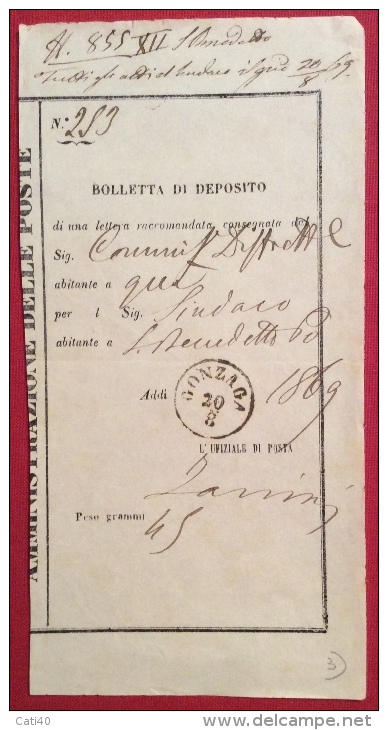 N. 855 XII S. Benedetto
20/8 69
N.° 253
AMMINISTRAZIONE DELLE POSTE
BOLLETTA DI DEPOSITO
di una lettera raccomandata consegnata dal
Sig. Commiss Distrettle
abitante a qui
per l Sig. Sindaco
abitante a S. Benedetto Po
Addì 1869
GONZAGA
20
8
L' UFIZIALE DI POSTA
Zanini
Peso grammi 45
3
Cati40
www.delcampe.net